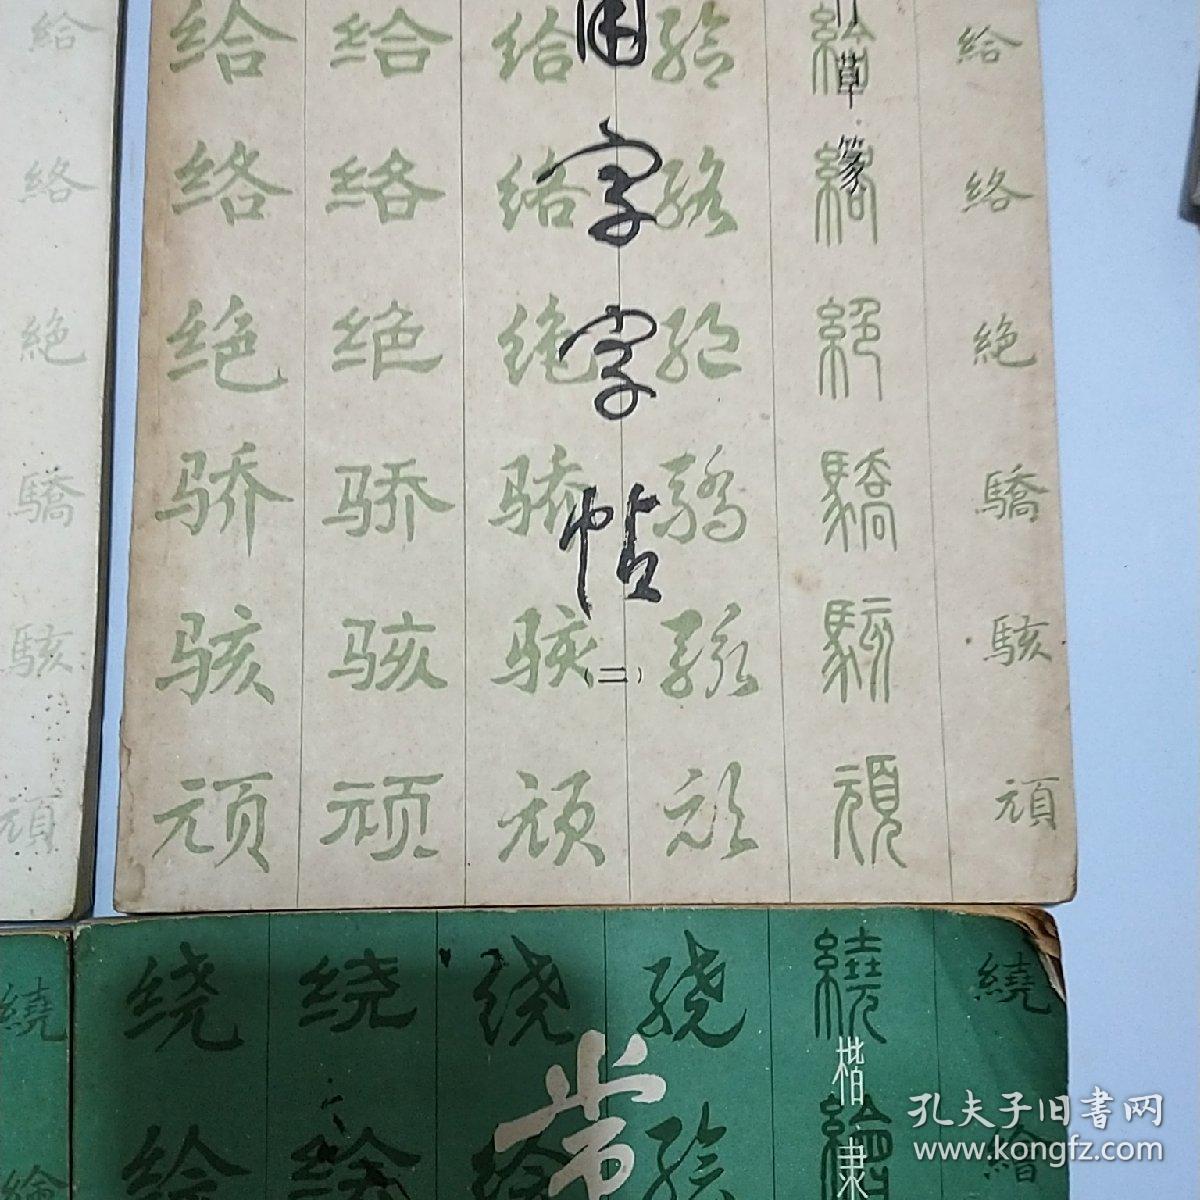 用字字帖
(二)
草·篆
给 给 给 给 給 給
络 络 络 络 絡 絡
绝 绝 绝 绝 絕 絶
骄 骄 骄 骄 驕 驕
骇 骇 骇 骇 駭 駭
顽 顽 顽 顽 頑 頑
給
絡
絶
驕
駭
頑
常
楷·隶
绕 绕 绕 绕 繞 繞
绘 绘 绘 绘 繪 繪
繞
繪
孔夫子旧书网
www.kongfz.com